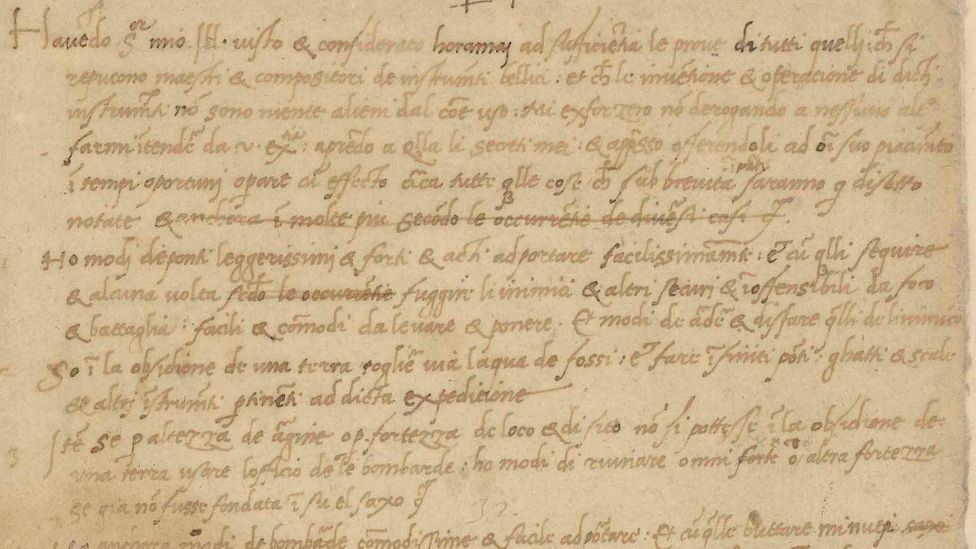 Havēdo S.or mio Ill. visto & considerato horamaj ad sufficientia le prove di tutti quelli ch si
reputono maestri & compositori de instrumti bellici: et ch le inventione & operatione di dicti
instrumti nō sono niente alieni dal cōe uso: Mi exforzero nō derogando a nessuno altro
farmi ītendr da v. ex.tia: aprēdo a qlla li secreti mei: & appsso offerendoli ad oī suo piacimto
ī tempi oportuni operare cū effecto circa tutte qlle cose ch sub brevita ī parte saranno q disotto
notate & anchora ī molte piu secōdo le occurrētie de divesi casi &c.
Ho modi de ponti leggerissimi & forti & acti ad portare facilissimamte: et cū qlli seguire
& alcuna volta secdo le occurrētie fuggire li inimici & altri securi & īoffensibili da foco
& battaglia: facili & cōmodi da levare & ponere. Et modi de arder & disfare qlli de linimico
So ī la obsidione de una terra toglier via laqua de fossi: et fare īfiniti pōti ghatti & scale
& altri īstrumti ptinenti ad dicta expeditione
3
Itē se p altezza de argine o p fortezza de loco & di sito nō si pottesse ī la obsidione de
una terra usare lofficio de le bombarde: ho modi di ruinare omni forte o altra fortezza
se gia nō fusse fondata ī su el saxo &c.
32.
ancora modi de bombarde cōmodissime & facile ad portare: Et cū qlle buttare minuti saxi